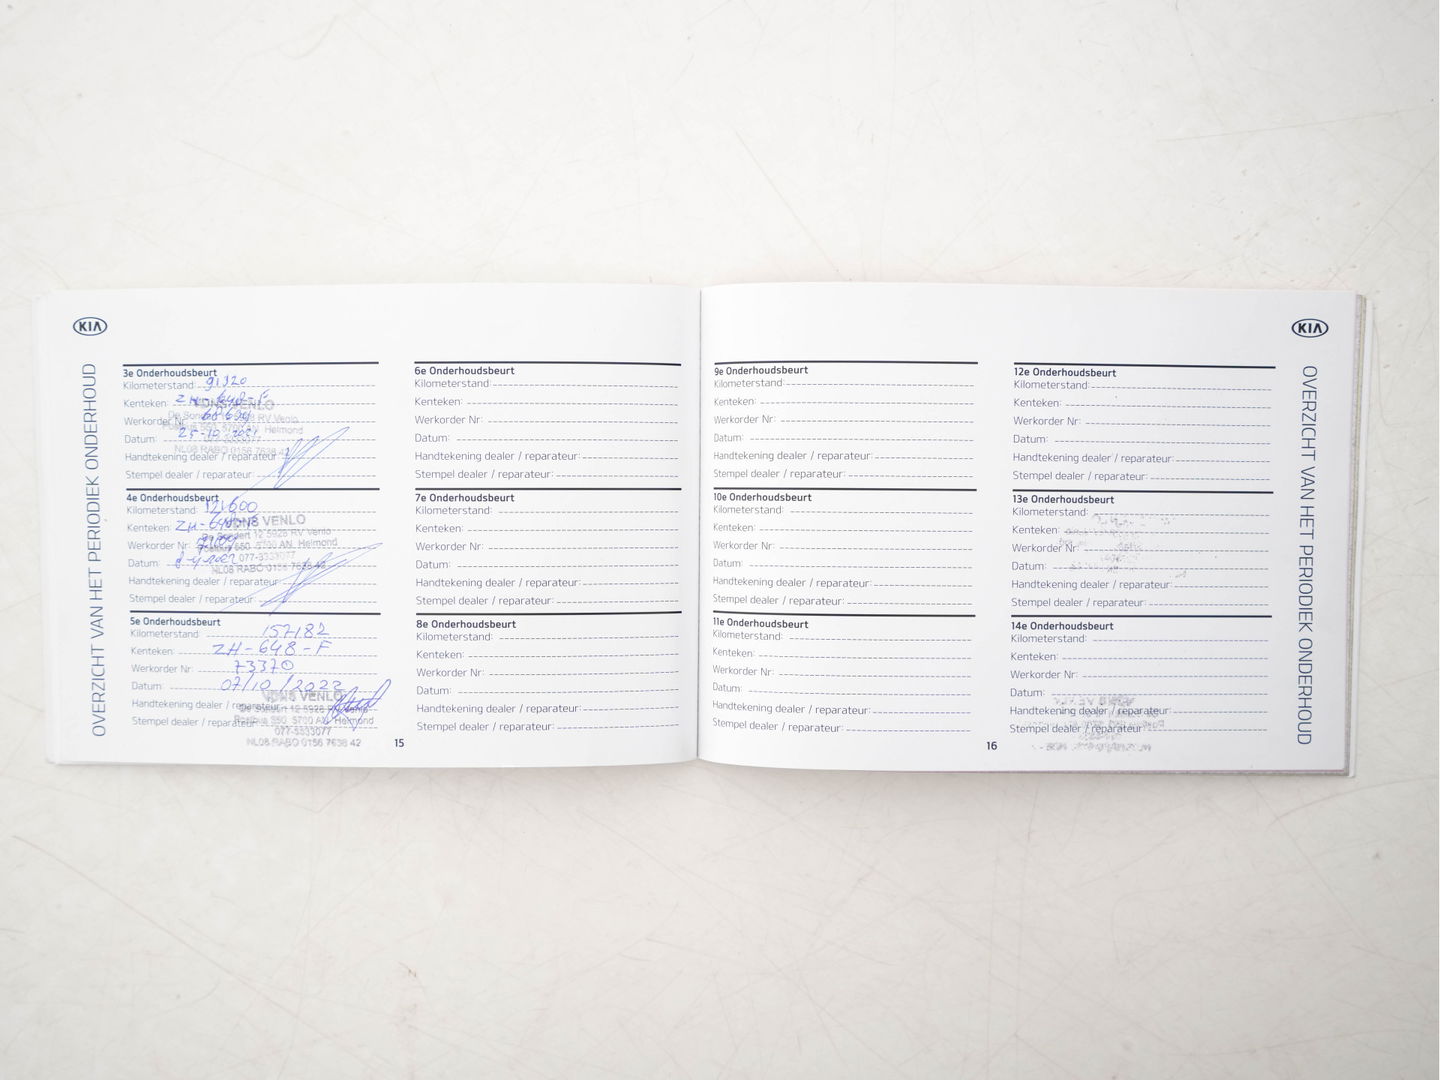 KIA
OVERZICHT VAN HET PERIODIEK ONDERHOUD
3e Onderhoudsbeurt
Kilometerstand: 91320
Kenteken: ZH-648-F
Werkorder Nr:
Datum:
Handtekening dealer / reparateur:
Stempel dealer / reparateur:
VDNS VENLO
De Sondert 12 5928 RV Venlo
Postbus 550, 5700 AN Helmond
NL08 RABO 0156 7638 42
4e Onderhoudsbeurt
Kilometerstand: 121600
Kenteken: ZH-648-F
Werkorder Nr:
Datum:
Handtekening dealer / reparateur:
Stempel dealer / reparateur:
VDNS VENLO
De Sondert 12 5928 RV Venlo
Postbus 550 5700 AN Helmond
077-5333077
NL08 RABO 0156 7638 42
5e Onderhoudsbeurt
Kilometerstand: 157182
Kenteken: ZH-648-F
Werkorder Nr: 73370
Datum: 07/10/2022
Handtekening dealer / reparateur:
Stempel dealer / reparateur:
VDNS VENLO
De Sondert 12 5928 RV Venlo
Postbus 550 5700 AN Helmond
077-5333077
NL08 RABO 0156 7638 42
6e Onderhoudsbeurt
Kilometerstand:
Kenteken:
Werkorder Nr:
Datum:
Handtekening dealer / reparateur:
Stempel dealer / reparateur:
7e Onderhoudsbeurt
Kilometerstand:
Kenteken:
Werkorder Nr:
Datum:
Handtekening dealer / reparateur:
Stempel dealer / reparateur:
8e Onderhoudsbeurt
Kilometerstand:
Kenteken:
Werkorder Nr:
Datum:
Handtekening dealer / reparateur:
Stempel dealer / reparateur:
15
9e Onderhoudsbeurt
Kilometerstand:
Kenteken:
Werkorder Nr:
Datum:
Handtekening dealer / reparateur:
Stempel dealer / reparateur:
10e Onderhoudsbeurt
Kilometerstand:
Kenteken:
Werkorder Nr:
Datum:
Handtekening dealer / reparateur:
Stempel dealer / reparateur:
11e Onderhoudsbeurt
Kilometerstand:
Kenteken:
Werkorder Nr:
Datum:
Handtekening dealer / reparateur:
Stempel dealer / reparateur:
16
12e Onderhoudsbeurt
Kilometerstand:
Kenteken:
Werkorder Nr:
Datum:
Handtekening dealer / reparateur:
Stempel dealer / reparateur:
13e Onderhoudsbeurt
Kilometerstand:
Kenteken:
Werkorder Nr:
Datum:
Handtekening dealer / reparateur:
Stempel dealer / reparateur:
14e Onderhoudsbeurt
Kilometerstand:
Kenteken:
Werkorder Nr:
Datum:
Handtekening dealer / reparateur:
Stempel dealer / reparateur:
KIA
OVERZICHT VAN HET PERIODIEK ONDERHOUD